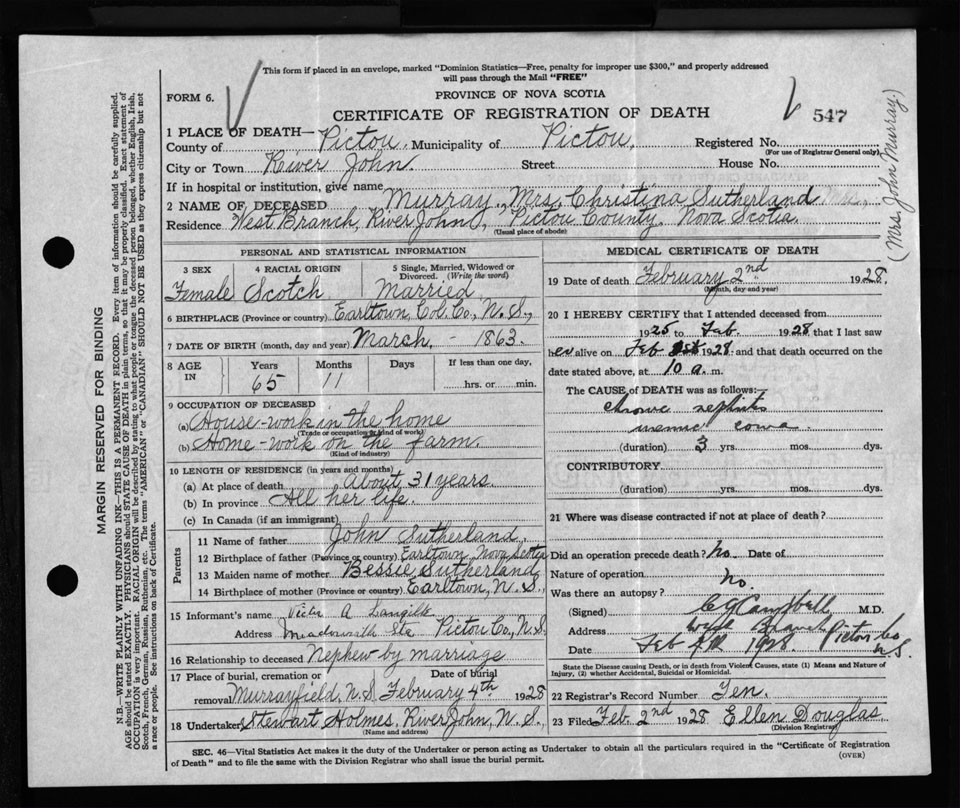 This form if placed in an envelope, marked "Dominion Statistics—Free, penalty for improper use $300," and properly addressed
will pass through the Mail "FREE"
FORM 6.
PROVINCE OF NOVA SCOTIA
CERTIFICATE OF REGISTRATION OF DEATH
547
1 PLACE OF DEATH—
County of Pictou. Municipality of Pictou. Registered No.
(For use of Registrar General only)
City or Town River John. Street House No.
If in hospital or institution, give name
2 NAME OF DECEASED Murray, Mrs. Christina Sutherland
(Mrs. John Murray)
Residence West Branch, River John, Pictou County, Nova Scotia.
(Usual place of abode)
PERSONAL AND STATISTICAL INFORMATION
3 SEX Female
4 RACIAL ORIGIN Scotch
5 Single, Married, Widowed or Divorced. (Write the word) Married
6 BIRTHPLACE (Province or country) Earltown, Col. Co., N.S.,
7 DATE OF BIRTH (month, day and year) March, - 1863.
8 AGE IN Years 65 Months 11 Days If less than one day, hrs. or min.
9 OCCUPATION OF DECEASED
(a) House-work in the home
(Trade or occupation or kind of work)
(b) Home-work on the farm.
(Kind of industry)
10 LENGTH OF RESIDENCE (in years and months)
(a) At place of death About 31 years.
(b) In province All her life.
(c) In Canada (if an immigrant)
Parents
11 Name of father John Sutherland.
12 Birthplace of father (Province or country) Earltown, Nova Scotia
13 Maiden name of mother Bessie Sutherland
14 Birthplace of mother (Province or country) Earltown, N.S.,
15 Informant's name A Langille
Address Pictou Co., N.S.
16 Relationship to deceased Nephew-by marriage
17 Place of burial, cremation or removal Date of burial
Murrayfield, N.S. February 4th 1928
18 Undertaker Stewart Holmes, River John, N.S.
(Name and address)
MEDICAL CERTIFICATE OF DEATH
19 Date of death February 2nd 1928.
(Month, day and year)
20 I HEREBY CERTIFY that I attended deceased from
1925 to Feb. 1928 that I last saw
her alive on Feb 1928 and that death occurred on the
date stated above, at 10 a. m.
The CAUSE of DEATH was as follows:
chronic nephritis
uremic coma.
(duration) 3 yrs. mos. dys.
CONTRIBUTORY
(duration) yrs. mos. dys.
21 Where was disease contracted if not at place of death?
Did an operation precede death? No. Date of
Nature of operation
Was there an autopsy? no
(Signed) Campbell, M.D.
Address West Branch Pictou Co N.S.
Date Feb 1928.
State the Disease causing Death, or in death from Violent Causes, state (1) Means and Nature of
Injury, (2) whether Accidental, Suicidal or Homicidal.
22 Registrar's Record Number Ten.
23 Filed Feb. 2nd 1928 Ellen Douglas
(Division Registrar)
SEC. 46—Vital Statistics Act makes it the duty of the Undertaker or person acting as Undertaker to obtain all the particulars required in the "Certificate of Registration
of Death" and to file the same with the Division Registrar who shall issue the burial permit.
(OVER)
MARGIN RESERVED FOR BINDING
N.B.—WRITE PLAINLY WITH UNFADING INK—THIS IS A PERMANENT RECORD. Every item of information should be carefully supplied.
AGE should be stated EXACTLY. PHYSICIANS should STATE CAUSE OF DEATH in plain terms, so that it may be properly classified. Exact statement of
OCCUPATION is very important. RACIAL ORIGIN will be described by stating to what people or tongue the deceased person belonged, whether English, Irish,
Scotch, French, German, Russian, Ruthenian, etc. The terms "AMERICAN" or "CANADIAN" SHOULD NOT BE USED as they express citizenship but not
a race or people. See instructions on back of Certificate.